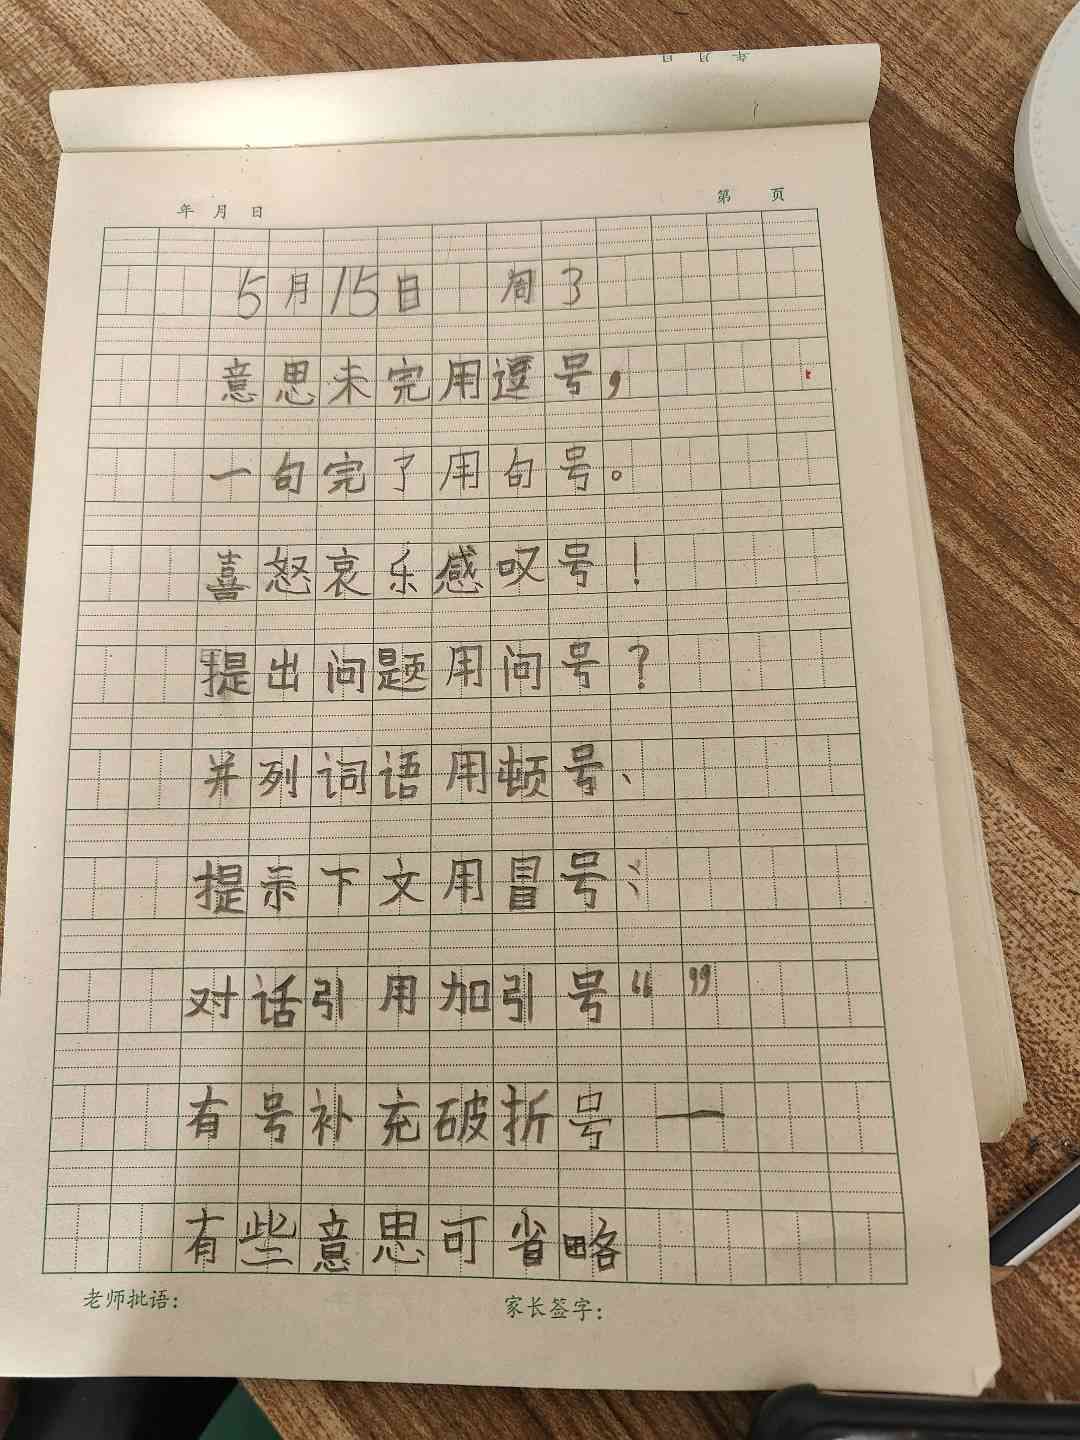 日 月 年
年 月 日 第 页
5月15日 周3
意思未完用逗号，
一句完了用句号。
喜怒哀乐感叹号！
提出问题用问号？
并列词语用顿号、
提示下文用冒号：
对话引用加引号“ ”
有号补充破折号 —
有些意思可省略
老师批语： 家长签字：